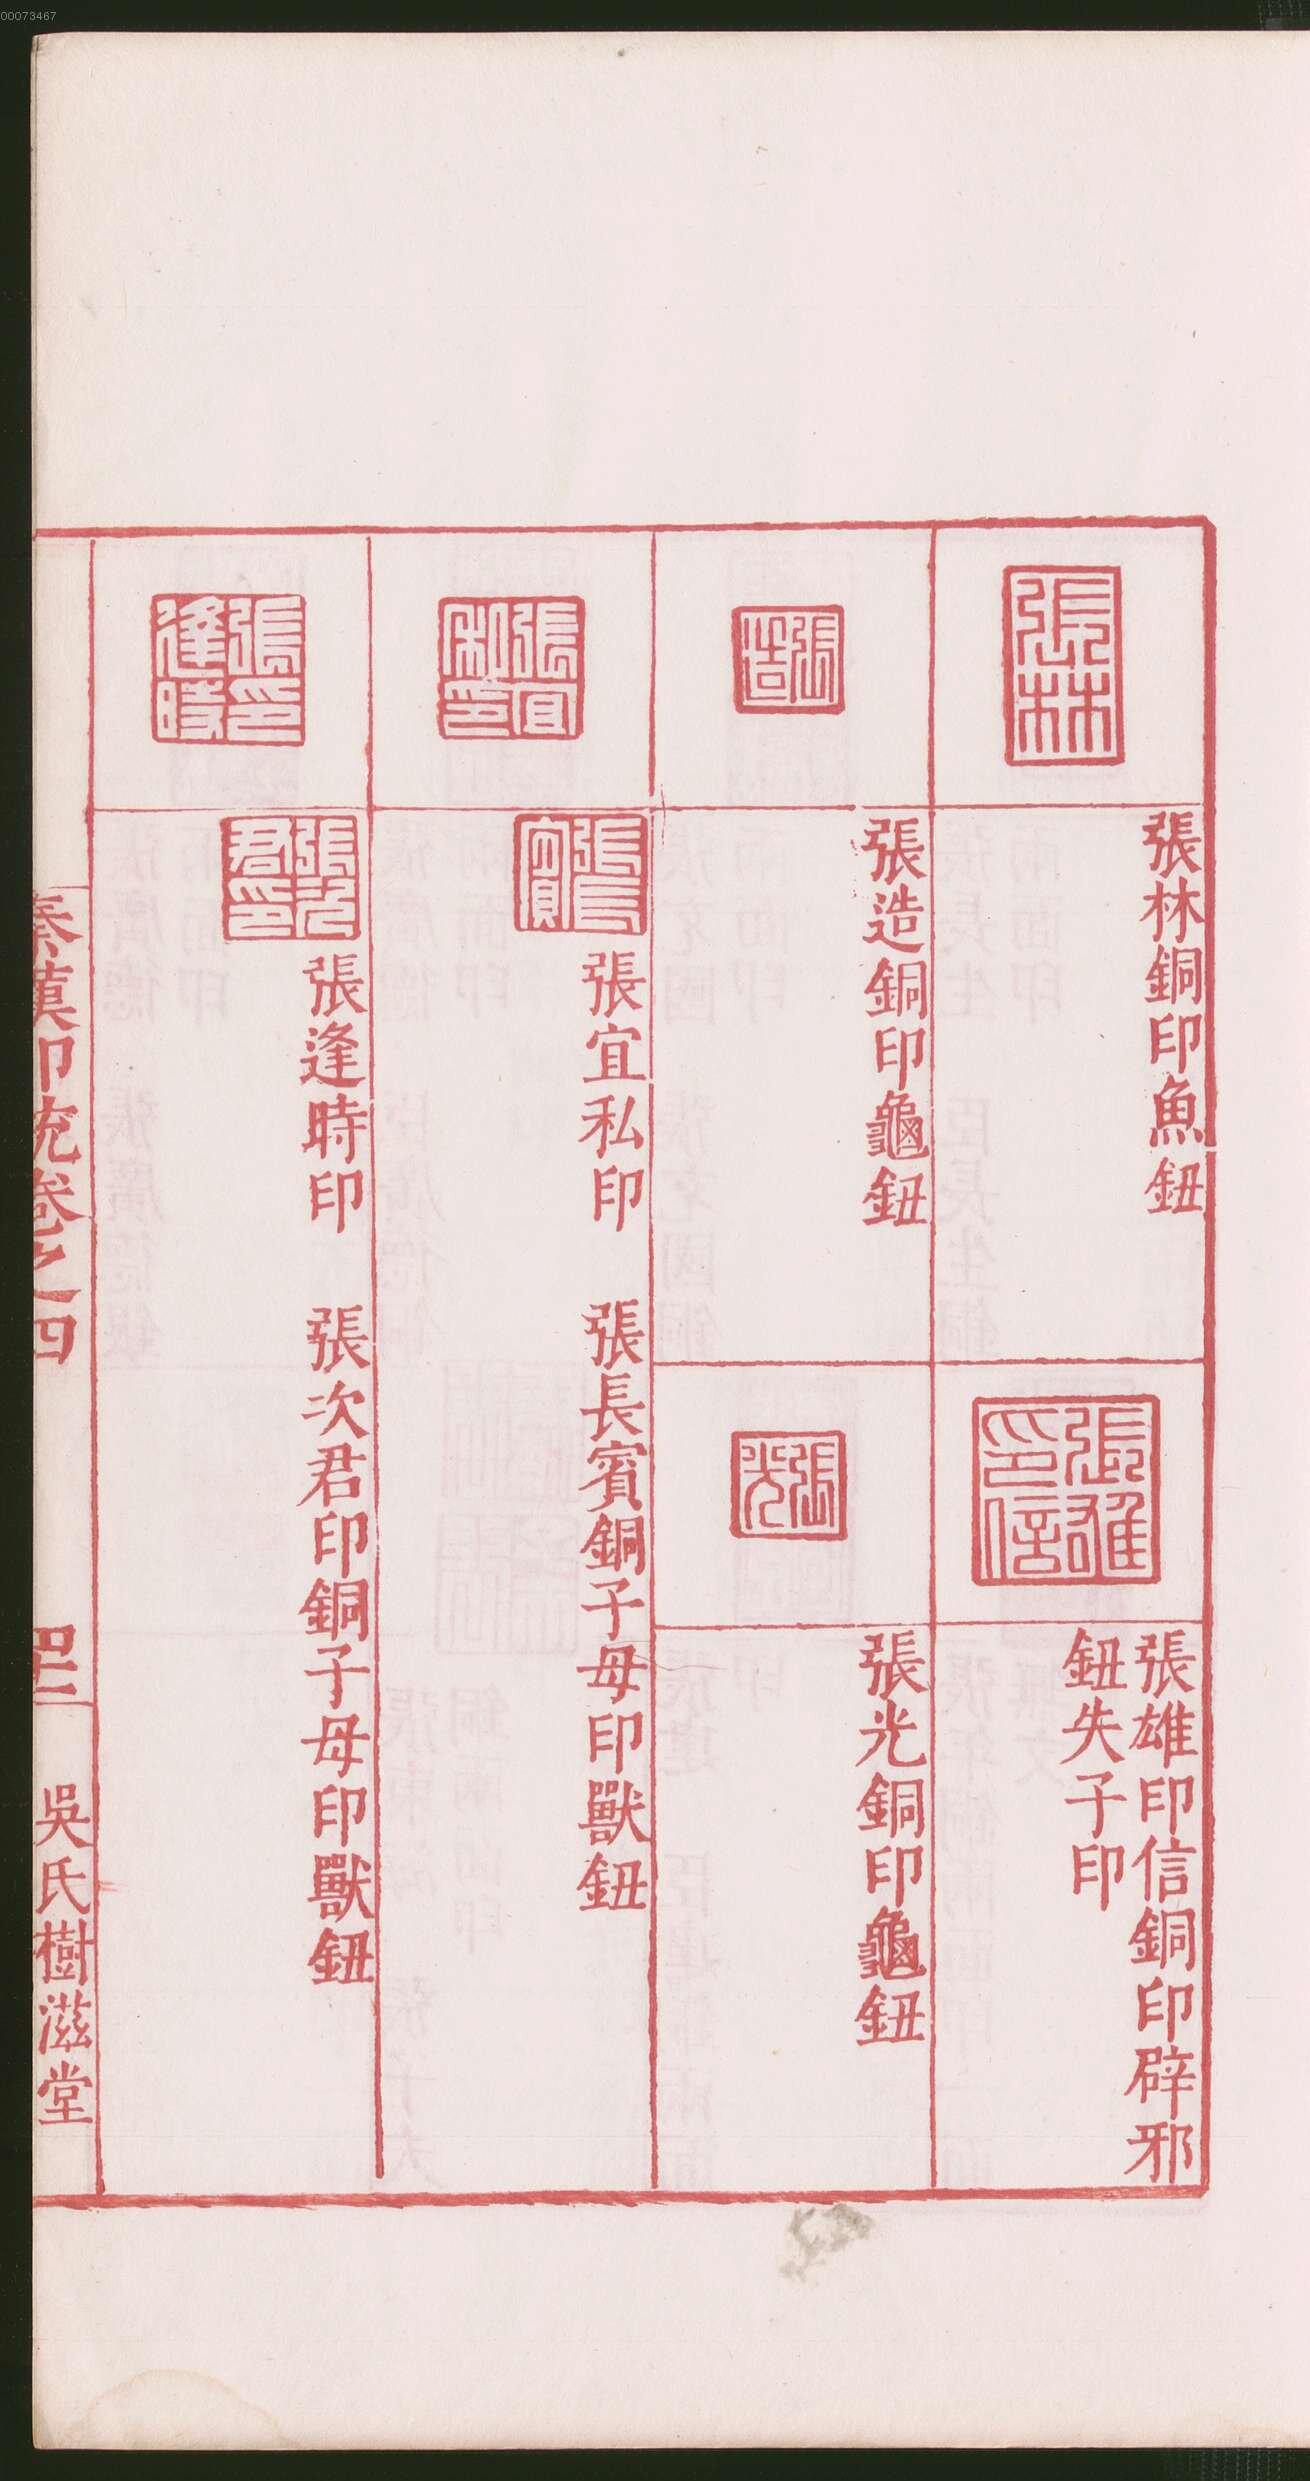 00073467
張林
張林銅印魚鈕
張雄印信
張雄印信銅印辟邪
鈕失子印
張造
張造銅印龜鈕
張光
張光銅印龜鈕
張宜私印
張長賓
張宜私印　張長賓銅子母印獸鈕
張印逢時
張次君印
張逢時印　張次君印銅子母印獸鈕
秦漢印統卷之四　吳氏樹滋堂